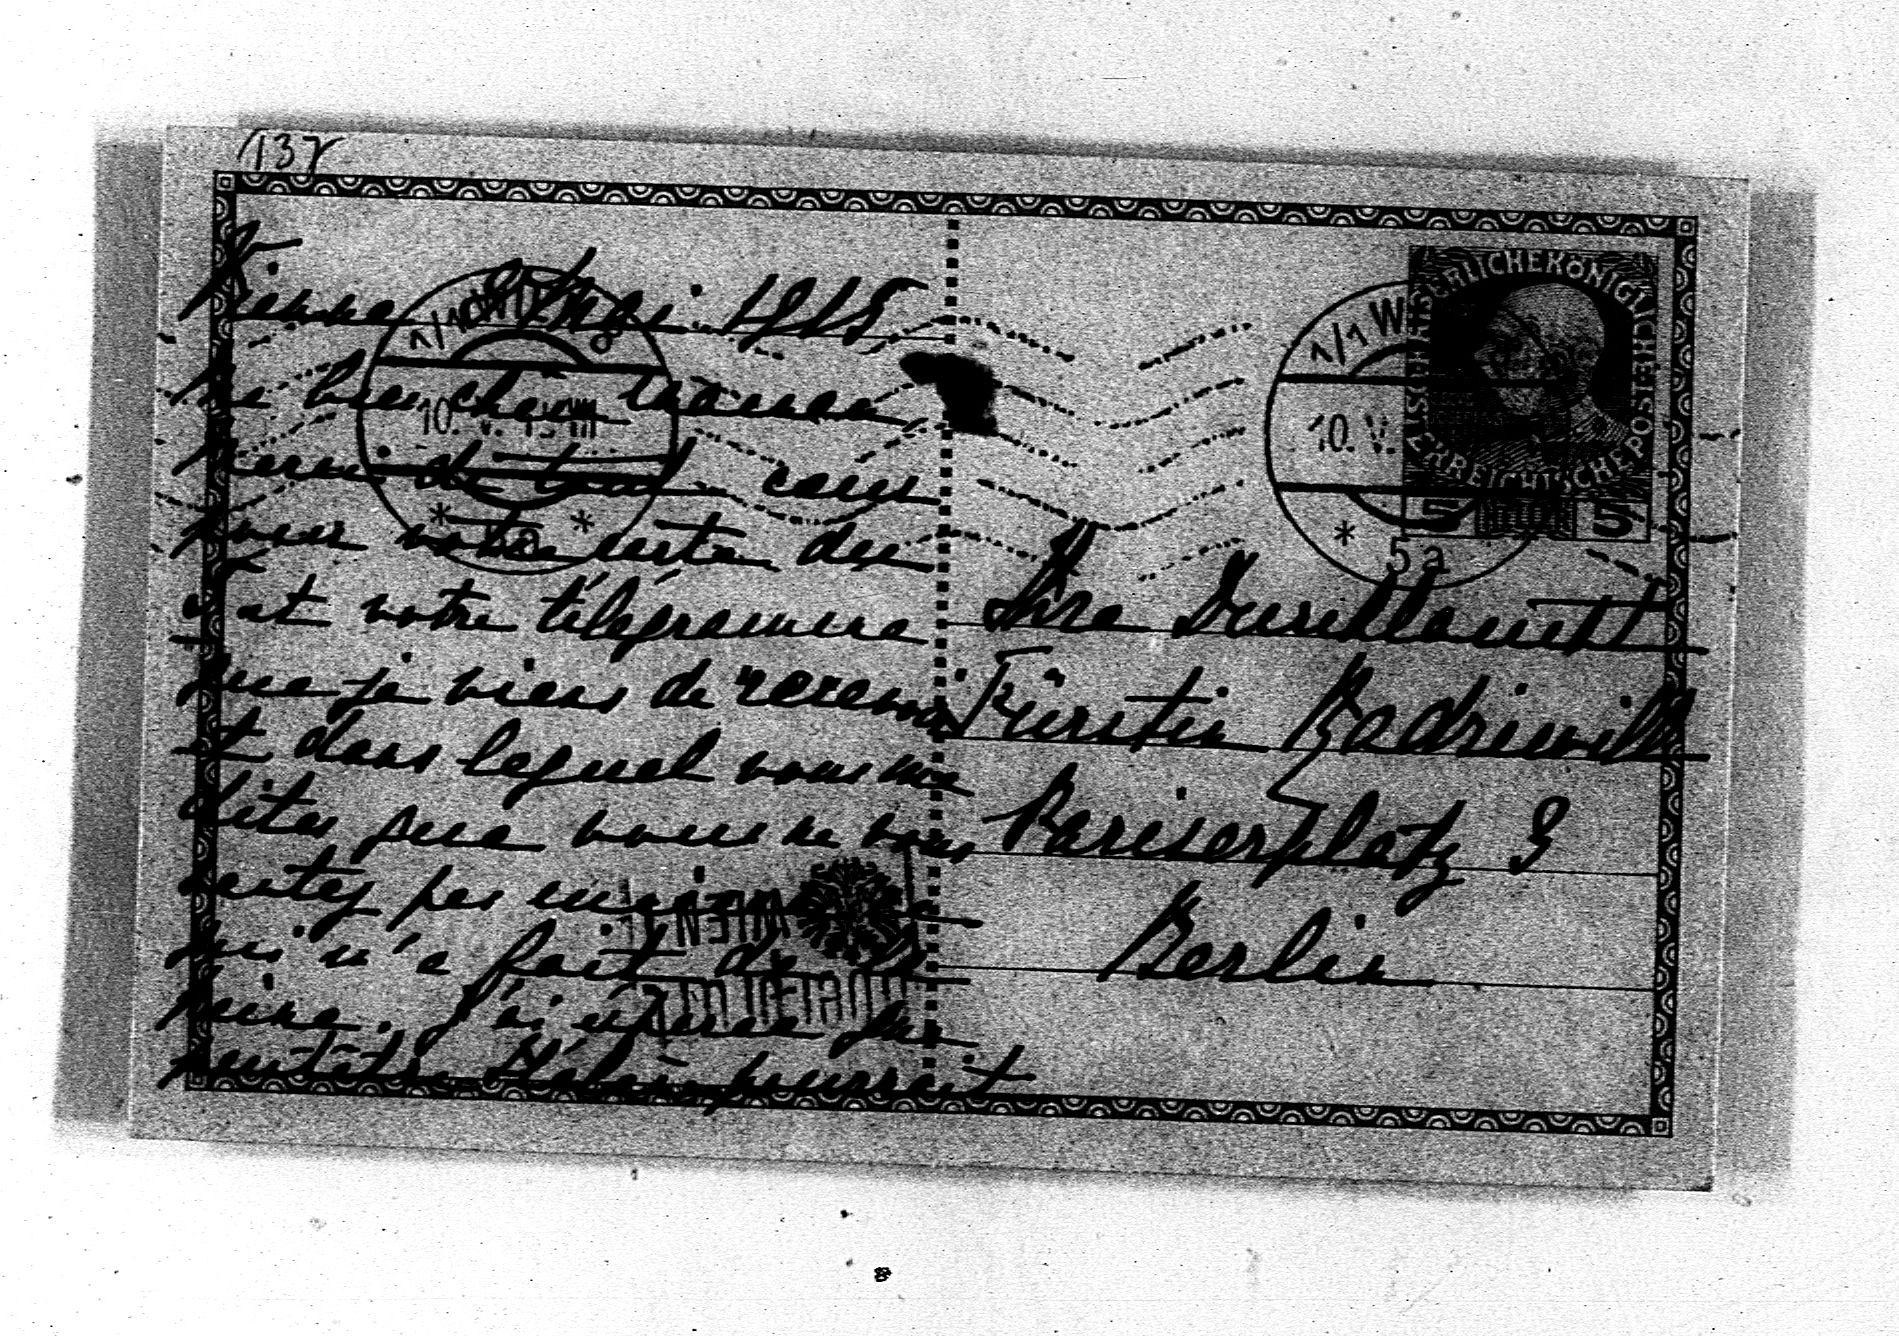 137
Vienne 9 Mai 1915
Ma bien chère maman,
Merci de tout cœur
pour votre carte du
6 et votre télégramme
que je viens de recevoir
et dans lequel vous me
dites que vous ne vous
sentez pas
qui m'a fait de la
peine. J'ai
peutêtre pourrait
Ihre Durchlaucht
Fürstin Radziwill
Pariserplatz 3
Berlin
1/1 WIEN
10. V. 15
1/1 W
10. V.
* 5a
KAISERLICHE KÖNIGLICHE ÖSTERREICHISCHE POST
5 5
WIEN 1